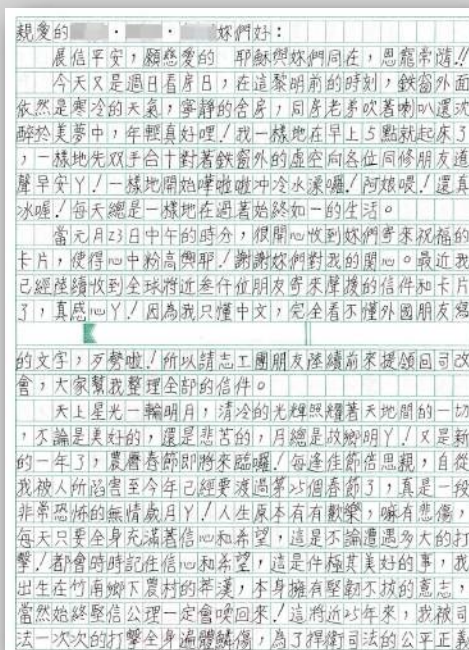 親愛的 · · 妳們好：
展信平安，願慈愛的 耶穌與妳們同在，恩寵常隨!!
今天又是週日看房日，在這黎明前的時刻，鐵窗外面
依然是寒冷的天氣，寧靜的舍房，同房老弟吹著喇叭還沈
醉於美夢中，年輕真好哩！我一樣地在早上5點就起床了
，一樣地先双手合十對著鉄窗外的虛空向各位同修朋友道
聲早安丫！一樣地開始嘩啦啦冲冷水澡囉！阿娘喂！還真
冰喔！每天總是一樣地在過著始終如一的生活。
當元月23日中午的時分，很開心收到妳們寄來祝福的
卡片，使得心中粉高興耶！謝謝妳們對我的關心。最近我
已經陸續收到全球將近叁仟位朋友寄來聲援的信件和卡片
了，真感心丫！因為我只懂中文，完全看不懂外國朋友寫
的文字，歹勢啦！所以請志工團朋友陸續前來提領回司改
會，大家幫我整理全部的信件。
天上星光一輪明月，清冷的光輝照耀著天地間的一切
，不論是美好的，還是悲苦的，月總是故鄉明丫！又是新
的一年了，農曆春節即將來臨囉！每逢佳節倍思親，自從
我被人所陷害至今年已經要渡過第25個春節了，真是一段
非常恐怖的無情歲月丫！人生原本有有歡樂，嘛有悲傷，
每天只要全身充滿著信心和希望，這是不論遭遇多大的打
擊！都會時時記住信心和希望，這是件極其美好的事，我
出生在竹南鄉下農村的莽漢，本身擁有堅韌不拔的意志，
當然始終堅信公理一定會喚回來！這將近25年來，我被司
法一次次的打擊全身遍體鱗傷，為了捍衛司法的公平正義